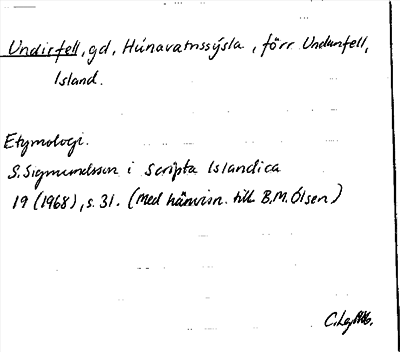 Undirfell, gd, Húnavatnssýsla, förr Undunfell,
Island.
Etymologi.
S. Sigmundsson i Scripta Islandica
19 (1968), s. 31. (Med hänvisn. till B.M. Ólsen)